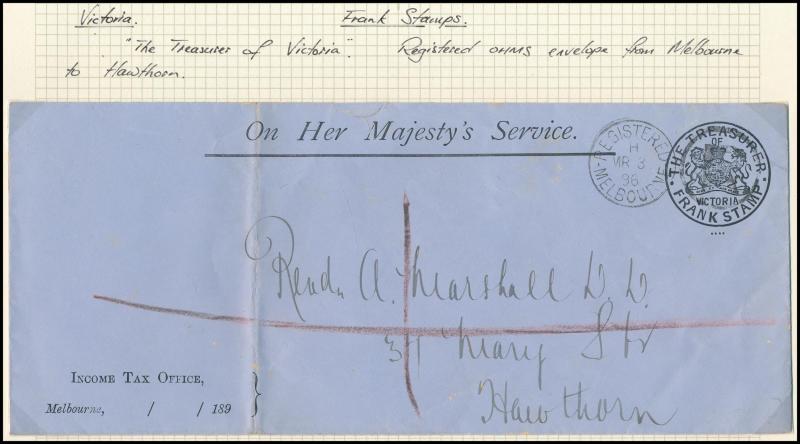 Victoria. Frank Stamps.
"The Treasurer of Victoria". Registered OHMS envelope from Melbourne
to Hawthorn.
On Her Majesty's Service.
REGISTERED
H
MR 3
96
MELBOURNE
THE TREASURER
OF
VICTORIA
FRANK STAMP
Revd. A. Marshall D.D.
Mary Str
Hawthorn
INCOME TAX OFFICE,
Melbourne, / / 189